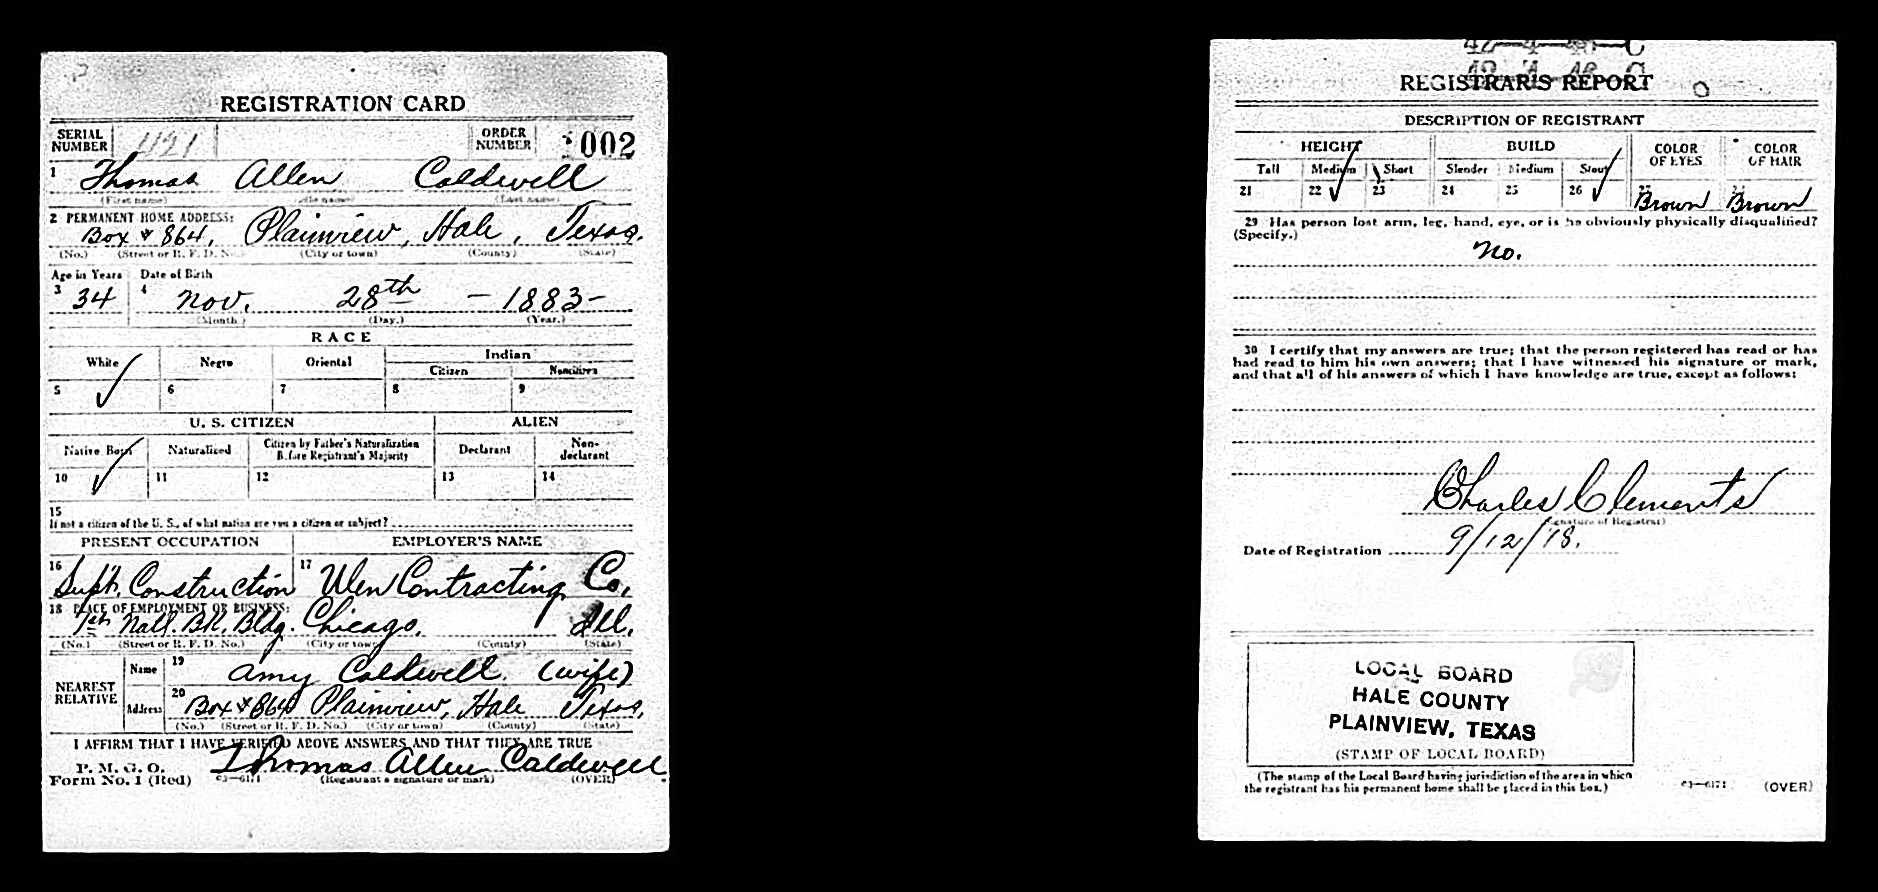 REGISTRATION CARD
SERIAL NUMBER 421 ORDER NUMBER 002
1 Thomas Allen Caldwell
(First name) (Middle name) (Last name)
2 PERMANENT HOME ADDRESS:
Box # 864, Plainview, Hale, Texas.
(No.) (Street or R. F. D. No.) (City or town) (County) (State)
Age in Years Date of Birth
3 34 4 Nov. 28th - 1883-
(Month.) (Day.) (Year.)
RACE
White Negro Oriental Indian
Citizen Noncitizen
5 ✓ 6 7 8 9
U. S. CITIZEN ALIEN
Native Born Naturalized Citizen by Father's Naturalization Before Registrant's Majority Declarant Non-declarant
10 ✓ 11 12 13 14
15
If not a citizen of the U. S., of what nation are you a citizen or subject?
PRESENT OCCUPATION EMPLOYER'S NAME
16 Supt. Construction 17 Contracting Co.
18 PLACE OF EMPLOYMENT OR BUSINESS:
1st Natl. Bk. Bldg. Chicago. Ill.
(No.) (Street or R. F. D. No.) (City or town) (County) (State)
NEAREST RELATIVE
Name 19 Amy Caldwell (wife)
Address 20 Box # 864 Plainview, Hale Texas.
(No.) (Street or R. F. D. No.) (City or town) (County) (State)
I AFFIRM THAT I HAVE VERIFIED ABOVE ANSWERS AND THAT THEY ARE TRUE
P. M. G. O.
Form No. 1 (Red) 03—6171 Thomas Allen Caldwell
(Registrant's signature or mark) (OVER)
42-4-46-C
42 4 46 C
REGISTRAR'S REPORT
DESCRIPTION OF REGISTRANT
HEIGHT BUILD COLOR OF EYES COLOR OF HAIR
Tall Medium Short Slender Medium Stout
21 22 ✓ 23 24 25 26 ✓ 27 Brown 28 Brown
29 Has person lost arm, leg, hand, eye, or is he obviously physically disqualified?
(Specify.)
No.
30 I certify that my answers are true; that the person registered has read or has
had read to him his own answers; that I have witnessed his signature or mark,
and that all of his answers of which I have knowledge are true, except as follows:
Charles Clements
(Signature of Registrar)
Date of Registration 9/12/18.
LOCAL BOARD
HALE COUNTY
PLAINVIEW, TEXAS
(STAMP OF LOCAL BOARD)
(The stamp of the Local Board having jurisdiction of the area in which
the registrant has his permanent home shall be placed in this box.)
03—6171 (OVER)